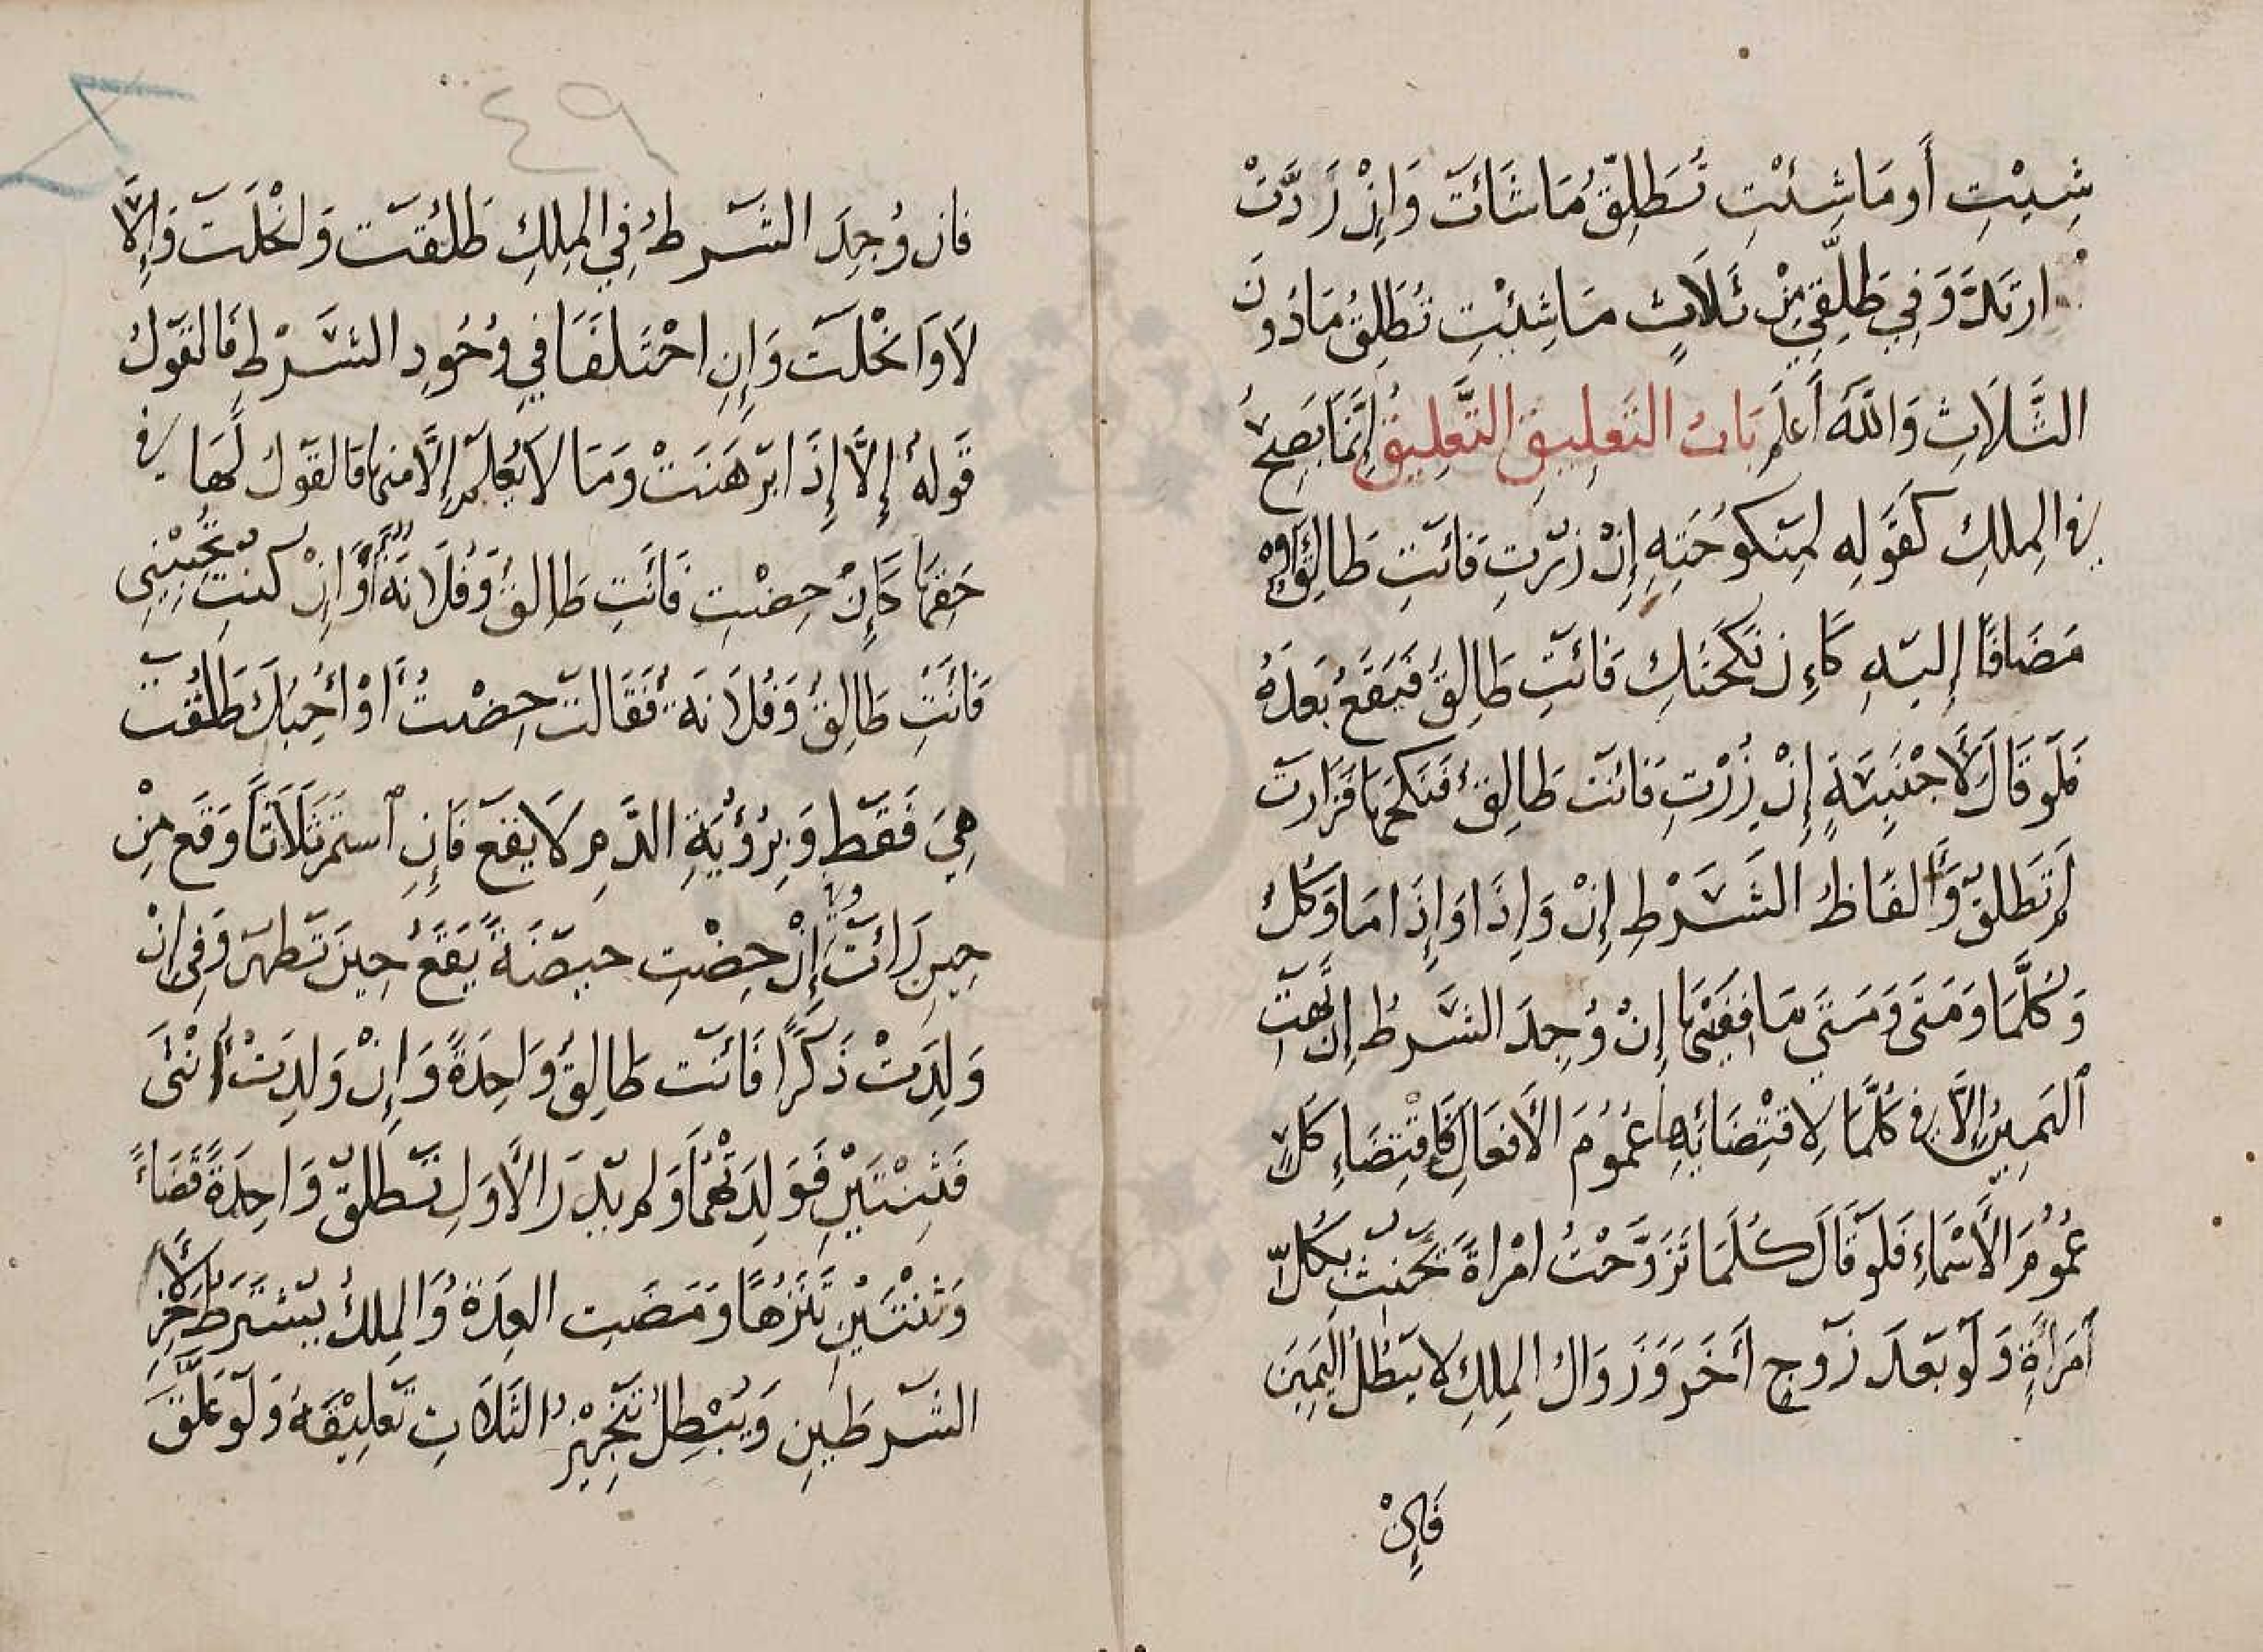 شِيْتِ أَو مَا شِئْتِ تُطَلِقُ مَا شَائَتْ وَاِنْ رَدَّتْ
ارتَدَّ وَفِي طَلِّقِي مِنْ ثَلَاثٍ مَا شِئْتِ تُطَلِقُ مَا دُونَ
الثَّلَاثِ وَاللّٰهُ أَعلَم بَابُ التَعلِيقِ التَّعلِيقُ إِنَّمَا يَصِحُّ
فِي المِلكِ كَقَولِه لمِنَكُوحَتِهِ إِنْ زُرْتِ فَاَنْتِ طَالِقٌ اَوْ
مَضَافًا إِليَهِ كَاءِن نَكَحْتُكِ فَاَنْتِ طَالِقٌ فَيَقَعُ بَعدَهُ
فَلَو قَالَ لِأَجْنَبِيَةٍ إِنْ زُرْتِ فَاَنْتِ طَالِقٌ فَنَكَحَهَا فَزَارَت
لَم تَطلقْ وَأَلفَاظُ الشَرْطِ إِنْ وَاِذَا وَاِذَا مَا وَكُلُ
وَكُلَّمَا وَمَتَى وَمَتَى مَا فَفِيْهَا إِنْ وُجِدَ الشَرطُ اِنْتَهَت
اليَمِينُ اِلَّا فِي كُلَّمَا لِاقتِضَائِهِا عُمُومَ الأَفعَالِ كَاِقتِضَاءِ كُلٍ
عُمُومَ الأَسْمَاءِ فَلَو قَالَ كُلَمَا تَزَوَّجْتُ امْرَاةً تَحنِثُ بِكُلِّ
اَمَرَاةٍ وَلَو بَعدَ زَوجٍ أَخَر وَزَوَالُ المِلكِ لَا يَبطُلُ اليَمِينَ
فَاِنْ
٤٩
فَان وُجِدَ الشَرطُ فِي المِلكِ طَلُقَت وَانحَلَت وَاِلَّا
لَا وَانْحَلَت وَاِنِ اخْتَلَفَا فِي وُجُودِ الشَرْطِ فَالقَولُ
قَولهُ إِلَّا إِذَا بَرهَنَتْ وَمَا لَا يُعلَم اِلَّا مِنهَا فَالقَولُ لَهَا فِي
حَقِهَا كَإِنْ حِضْتِ فَاَنَتِ طَالِقٌ وَفُلَانَةٌ أَوْ اِنْ كُنتِ تُحِبِّيْنِي
فَاَنْتِ طَالِقٌ وَفُلَانَةٌ فَقَالَت حِضْتُ أَوْ أُحِبُكَ طَلُقَت
هِيَ فَقَط وَبِرُؤيَةِ الدَّمِ لَا يَقَع فَاِنِ استَمَرَ ثَلَاثًا وَقَع مِنْ
حِينِ رَاَت وَفِي إِنْ حِضْتِ حَيضَةً يَقَعُ حِينَ تَطهُر وَفِي اِنْ
وَلِدَتْ ذَكَرًا فَاَنْت طَالِقٌ وَاحِدَةً وَاِنْ وَلِدَتْ أُنْثَى
فَثِنْتَيْنِ فَوَلِدَتْهُمَا وَلَم يُدرَ الأَوَلِ تَطلُق وَاحِدَةً قَضَاءً
وَثِنْتَيْنِ تَنَزُهًا وَمَضَت العِدَةُ وَالمِلكُ يُشتَرَط لِأَخِرِ
الشَرطَيِن وَيُبْطِلُ تَنجِيزُ الثَلَاثِ تَعلِيقَهُ وَلَو عَلَّقَ